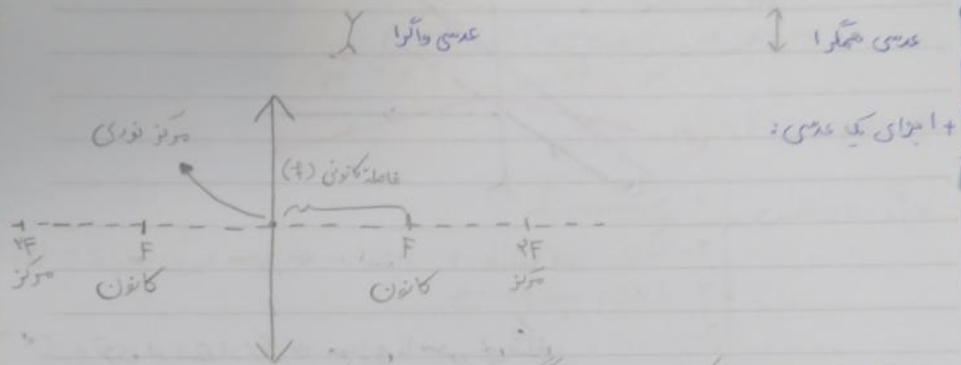 عدسی همگرا عدسی واگرا
+ اجزای یک عدسی:
مرکز نوری
فاصله کانونی (f)
۲F F F ۲F
مرکز کانون کانون مرکز